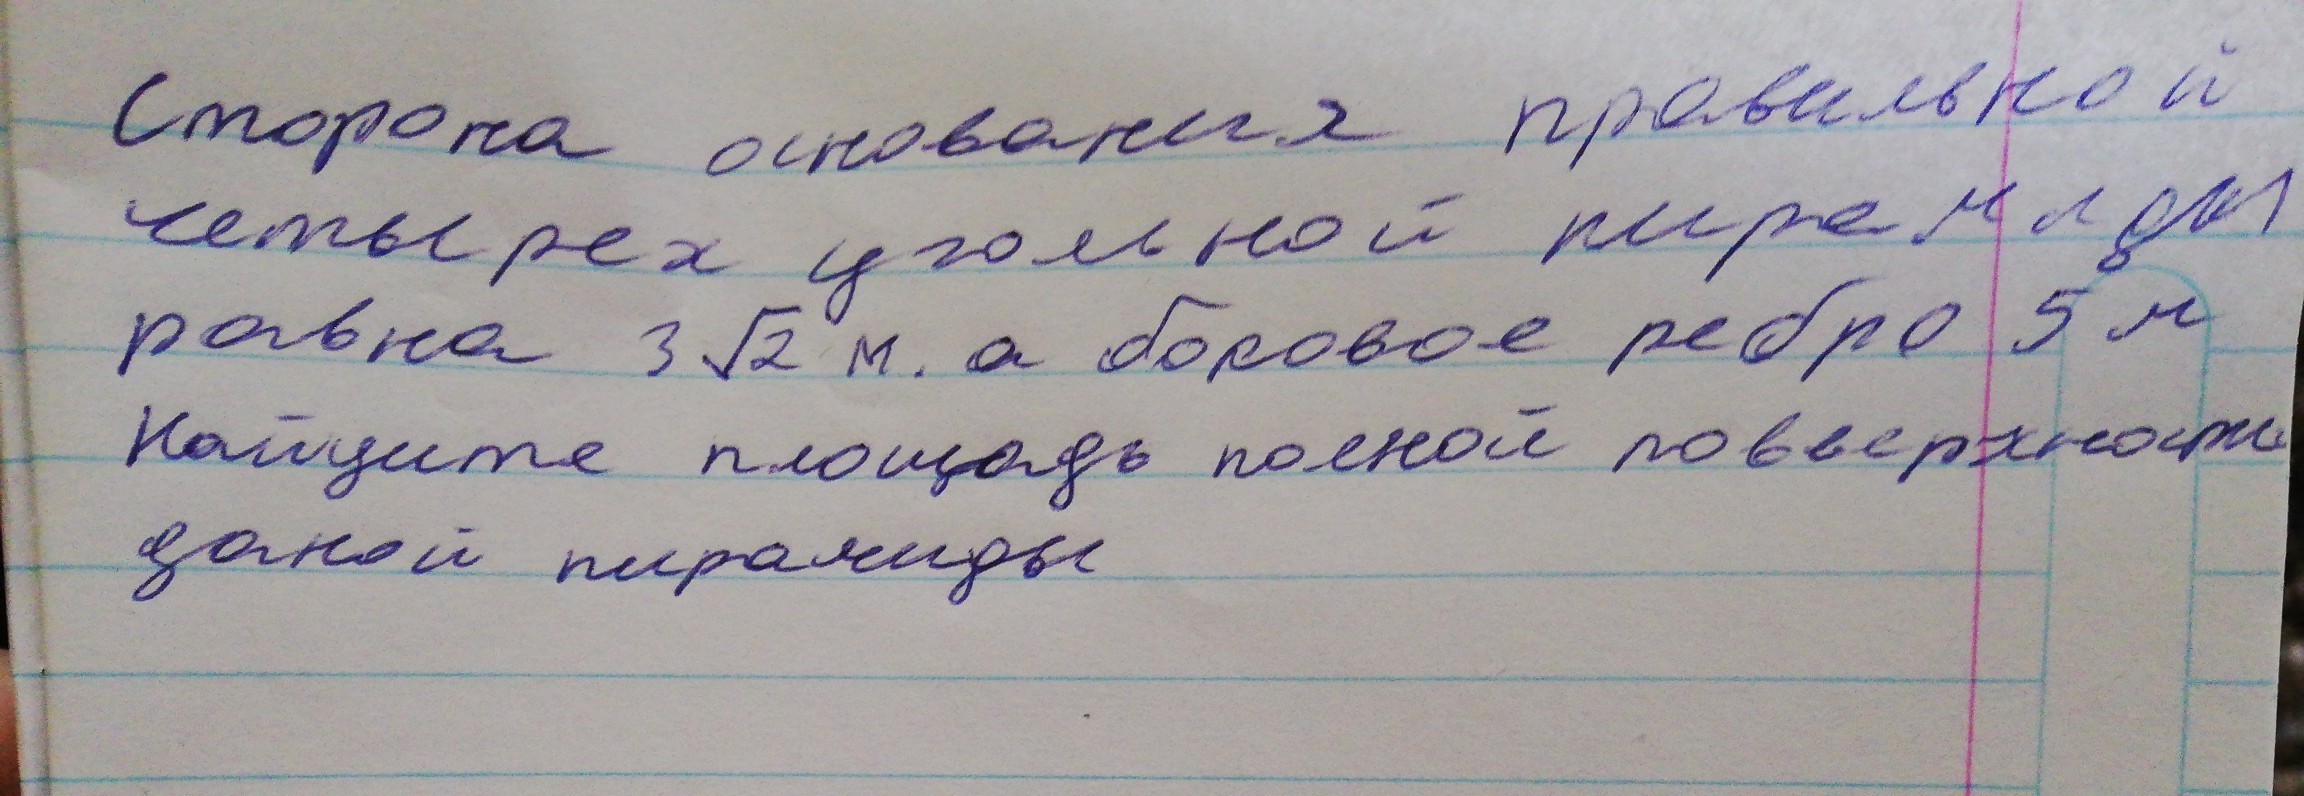 Сторона основания правильной
четырех угольной пирамиды
равна 3√2 м. а боковое ребро 5 м
Найдите площадь полной повверхности
даной пирамиды